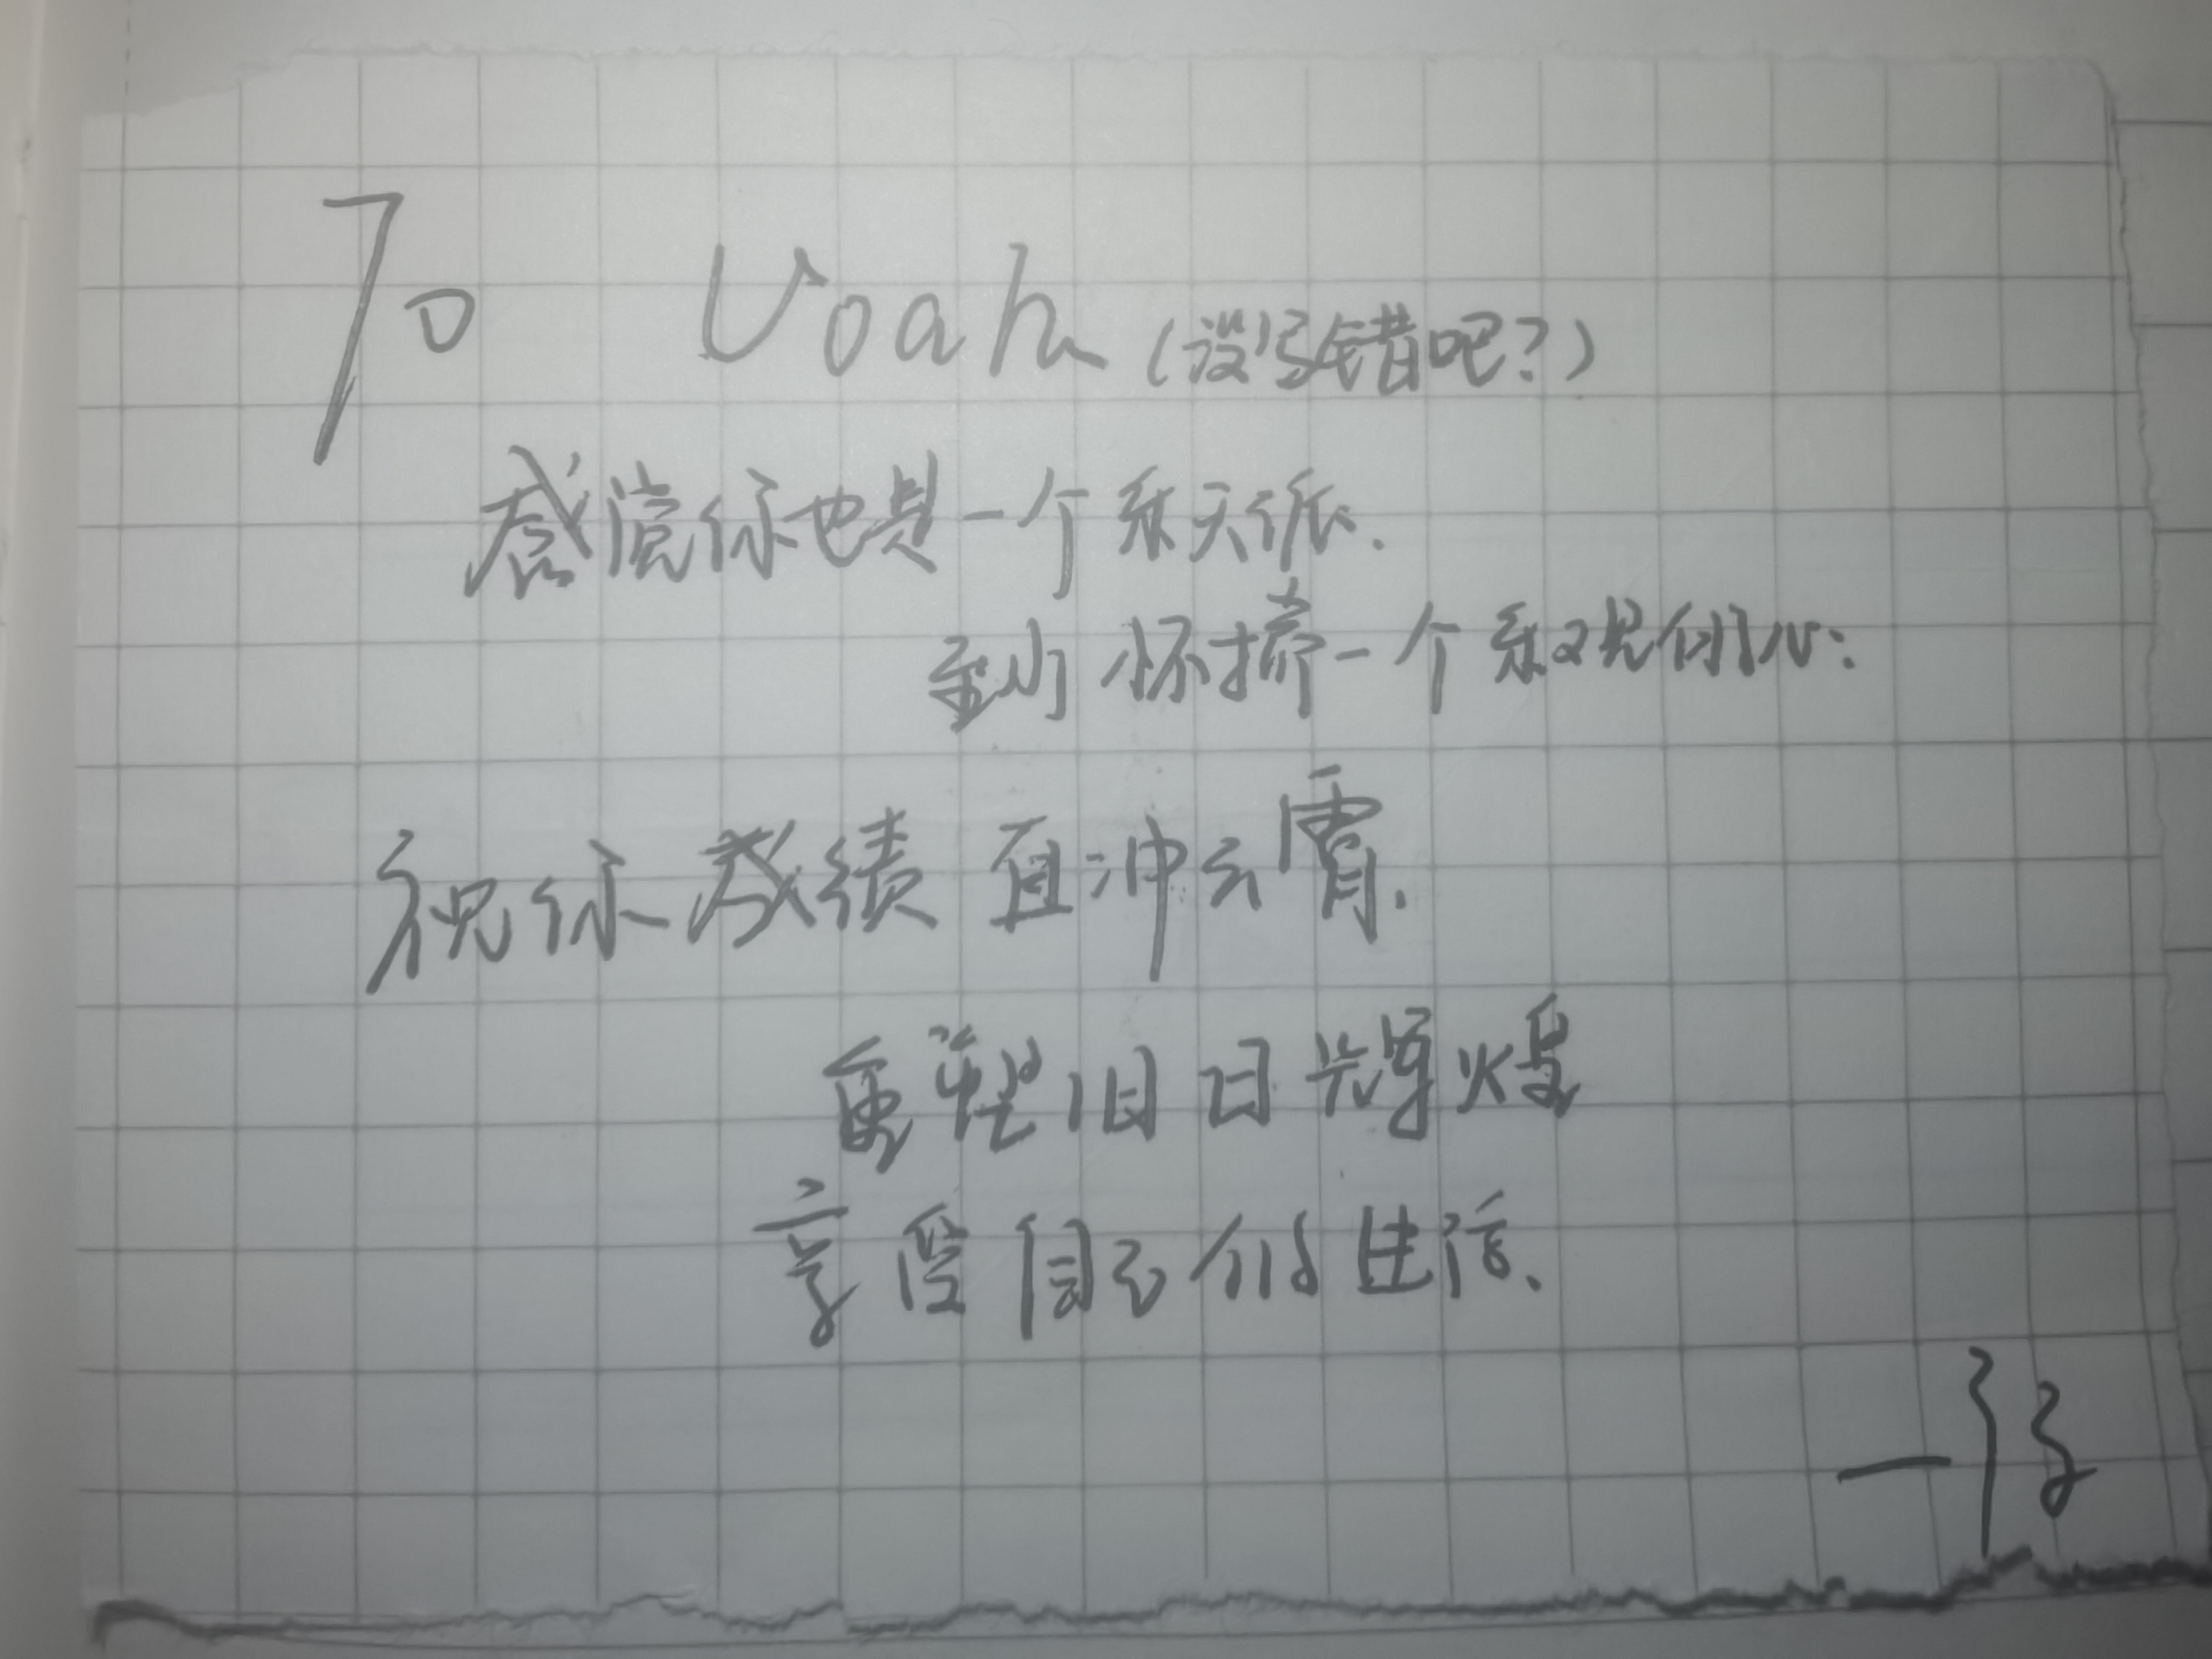 To Uoah (没写错吧?)
感觉你也是一个乐天派.
到 怀揣一个乐观的心:
祝你成绩 直冲云霄.
重塑旧日辉煌
享受自己的生活.